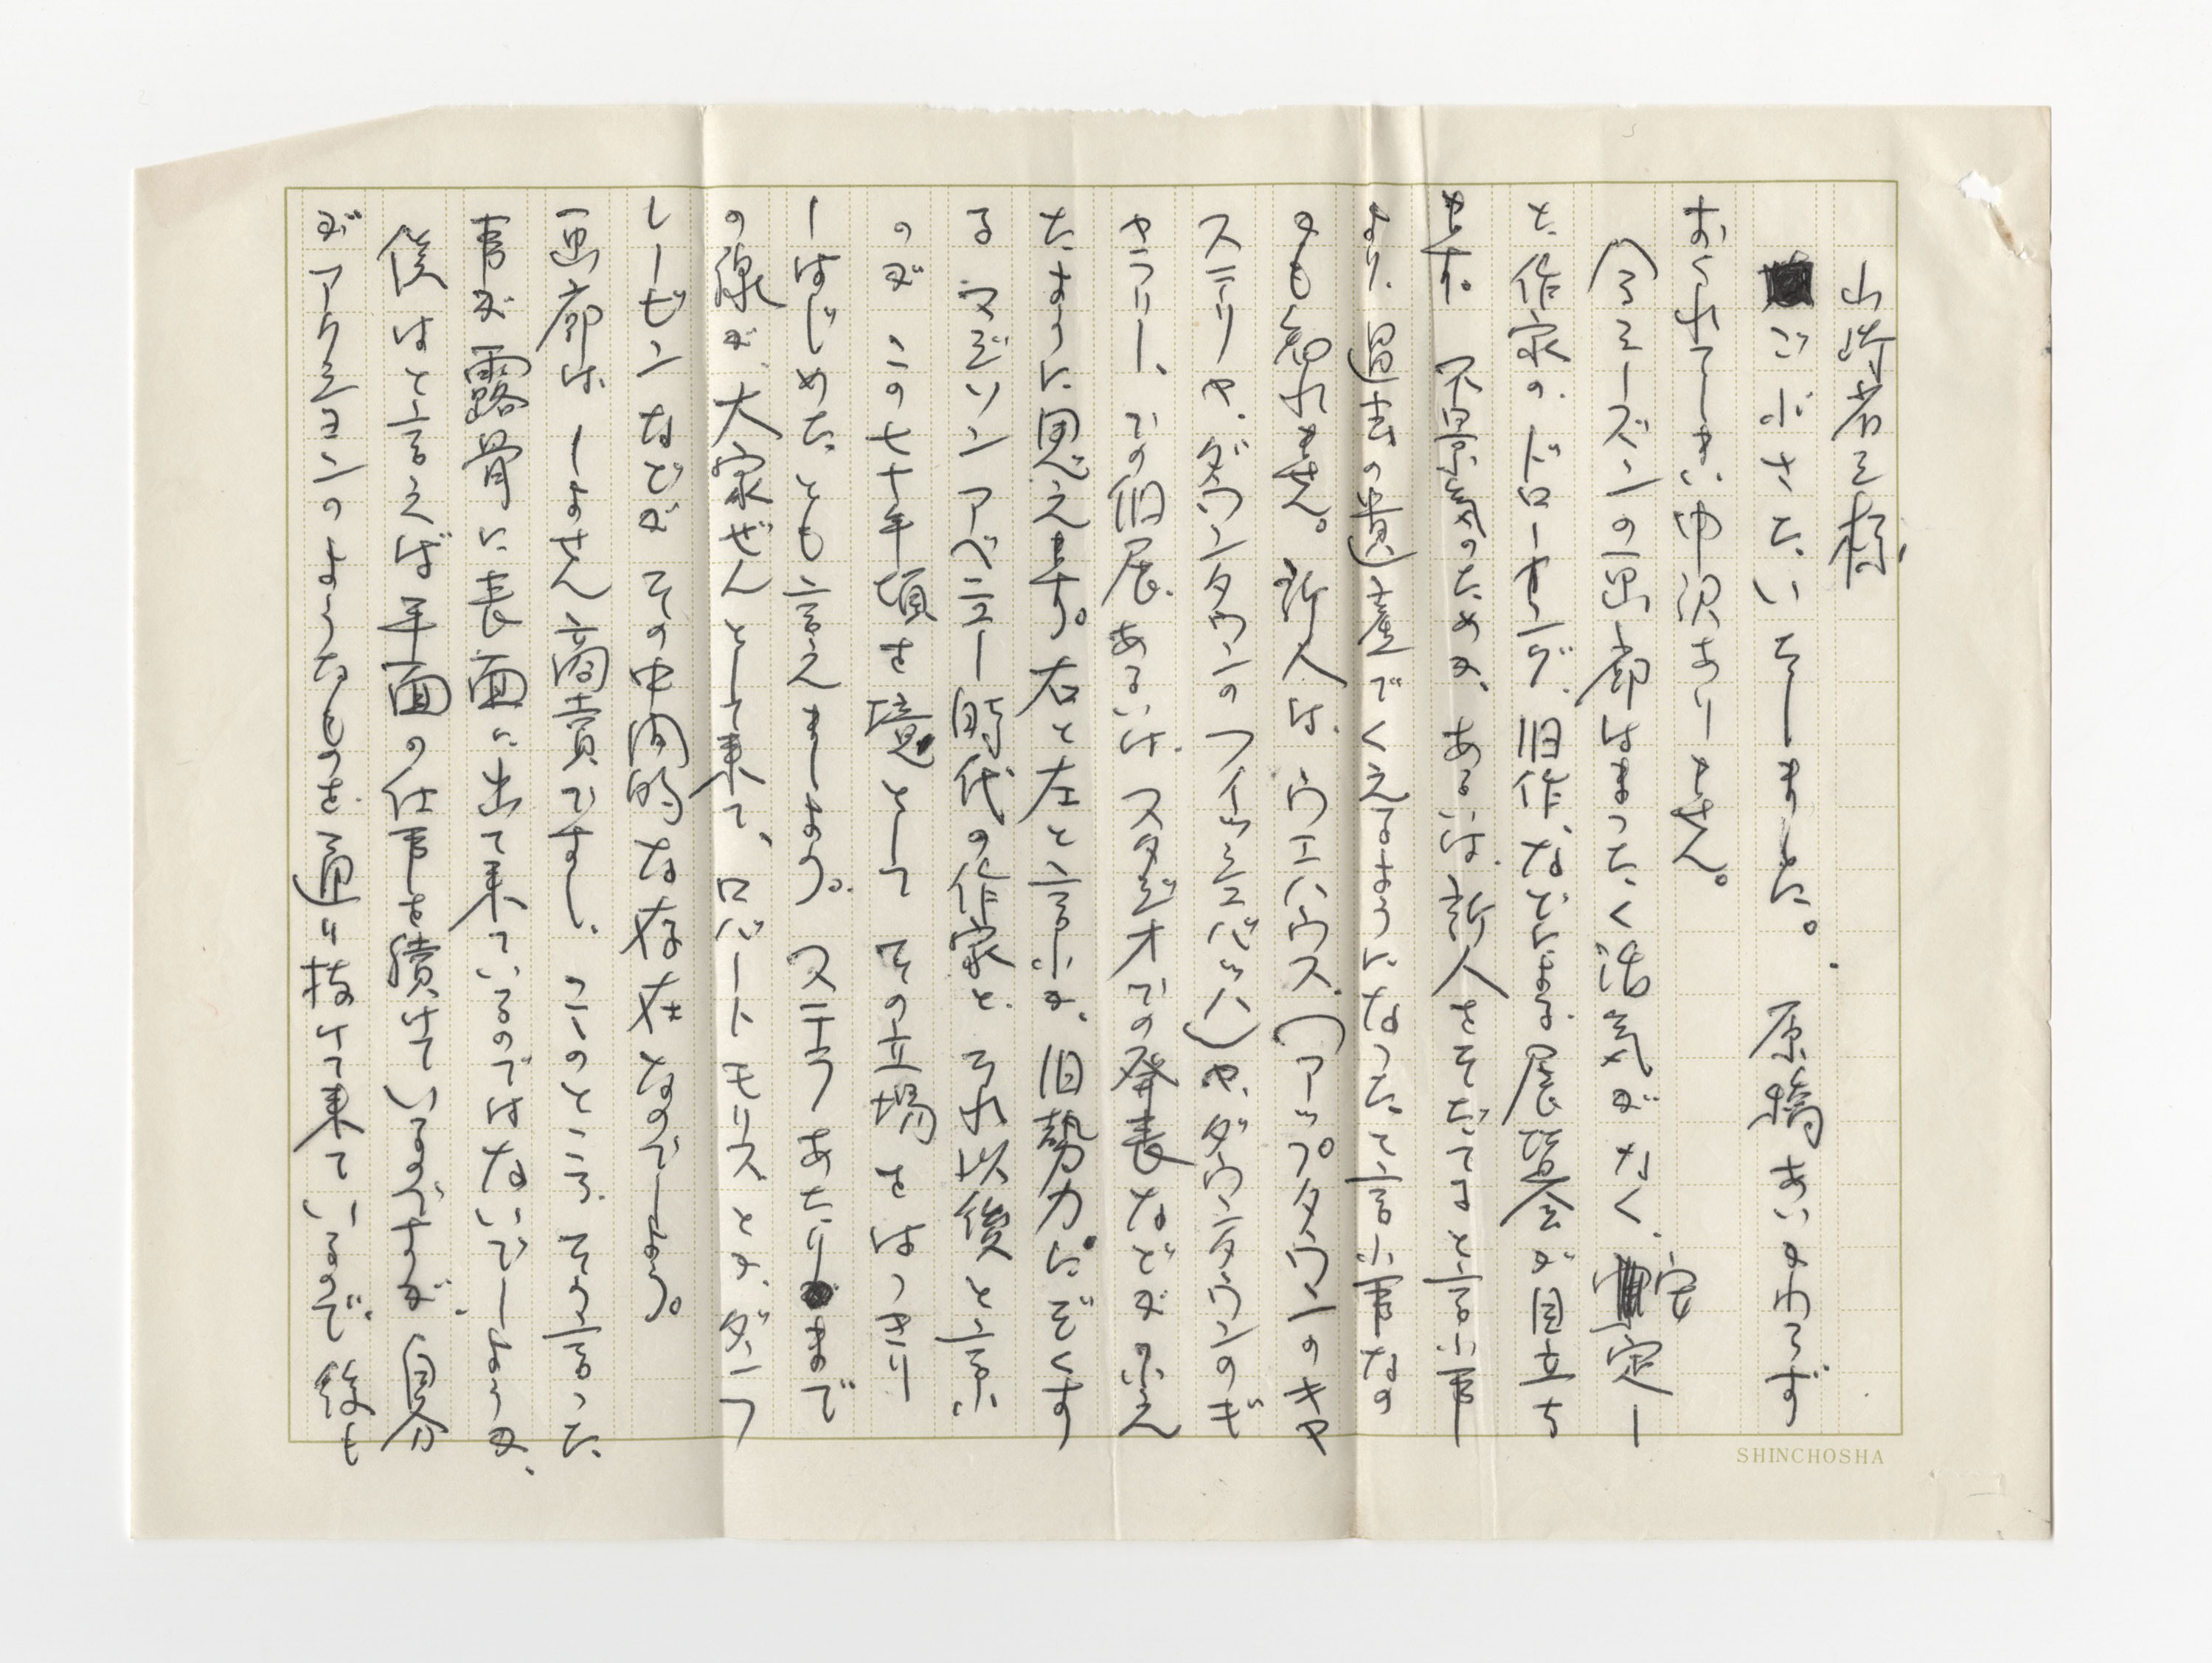 山崎省三様
ごぶさたいたしました。 原稿あいかわらず
おくれてしまい申訳ありません。
今シーズンの画廊はまったく活気がなく、安定し
た作家の、ドローイング、旧作、などによる展覧会が目立ち
ます。不景気のためか、あるいは、新人をそだてると言ふ事
より、過去の貯蓄でくえるようになったと言ふ事なの
かも知れません。新人は、ウエハウス(アップタウンのキャ
ステリや、ダウンタウンのフィッシュバッハ)や、ダウンタウンのギ
ャラリー、での個展、あるいは、スタジオでの発表などがふえ
たように思えます。右と左と言ふか、旧勢力にぞくす
る マジソンアベニュー時代の作家と、それ以後と言ふ
のが この七十年頃を境として その立場をはっきり
しはじめたとも言えましょう。ステラあたりまで
の線が、大家ぜんとして来て、ロバートモリスとか、ダンフ
レービンなどが その中間的な存在となるのでしょう。
画廊は しょせん商売ですし、このところ、そう言った
事が露骨に表面に出て来ているのではないでしょうか、
僕はと言えば平面の仕事を続けているのですが、自分
がアクションのようなものを通り抜けて来ているので、線も
SHINCHOSHA